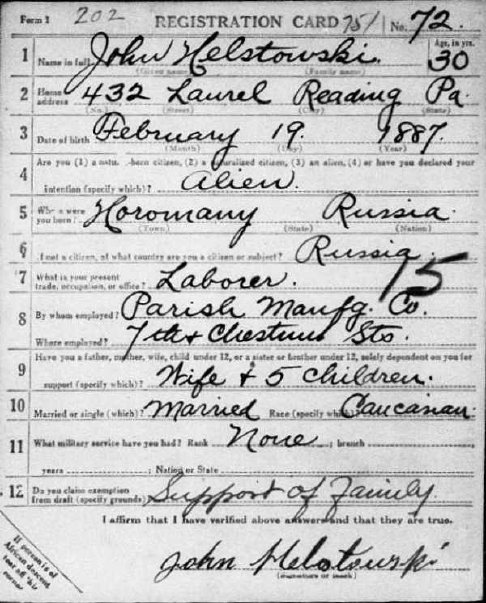 Form 1 202 REGISTRATION CARD 751 No. 72.
1 Name in full John Helstowski. Age, in yrs. 30
(Given name) (Family name)
2 Home address 432 Laurel Reading Pa.
(No.) (Street) (City) (State)
3 Date of birth February 19. 1887.
(Month) (Day) (Year)
Are you (1) a natu born citizen, (2) a naturalized citizen, (3) an alien, (4) or have you declared your
4 intention (specify which)? Alien.
5 Where were you born? Horomany Russia.
(Town) (State) (Nation)
6 If not a citizen, of what country are you a citizen or subject? Russia.
7 What is your present trade, occupation, or office? Laborer. 15
8 By whom employed? Parish Manfg. Co.
Where employed? 7th & Chestnut Sts.
Have you a father, mother, wife, child under 12, or a sister or brother under 12, solely dependent on you for
9 support (specify which)? Wife & 5 children.
10 Married or single (which)? Married Race (specify which)? Caucasian.
11 What military service have you had? Rank None ; branch
years ; Nation or State
12 Do you claim exemption from draft (specify grounds)? Support of Family.
I affirm that I have verified above answers and that they are true.
John Helstowski
(Signature or mark)
If person is of
African descent,
tear off this
corner